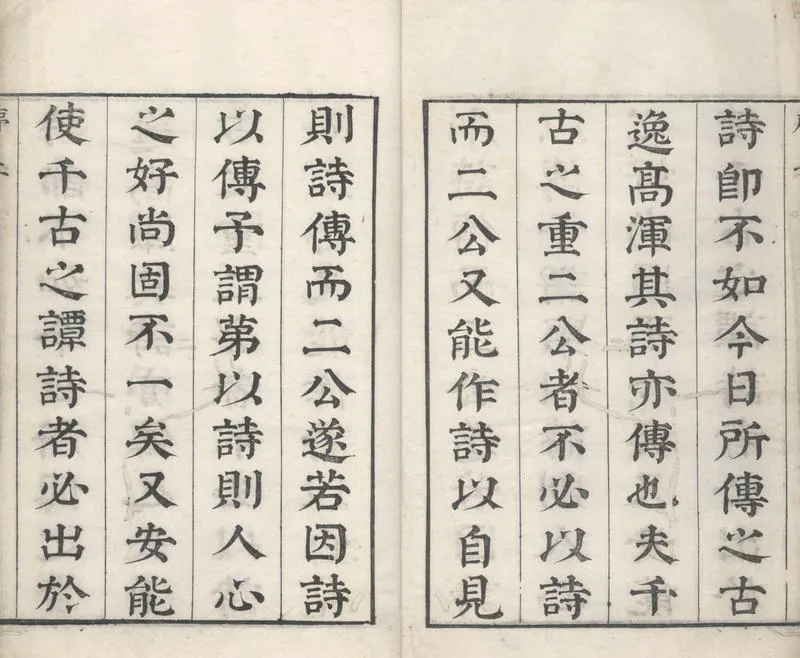 詩卽不如今日所傳之古
逸髙渾其詩亦傳也夫千
古之重二公者不必以詩
而二公又能作詩以自見
則詩傳而二公遂若因詩
以傳予謂苐以詩則人心
之好尚固不一矣又安能
使千古之譚詩者必出於